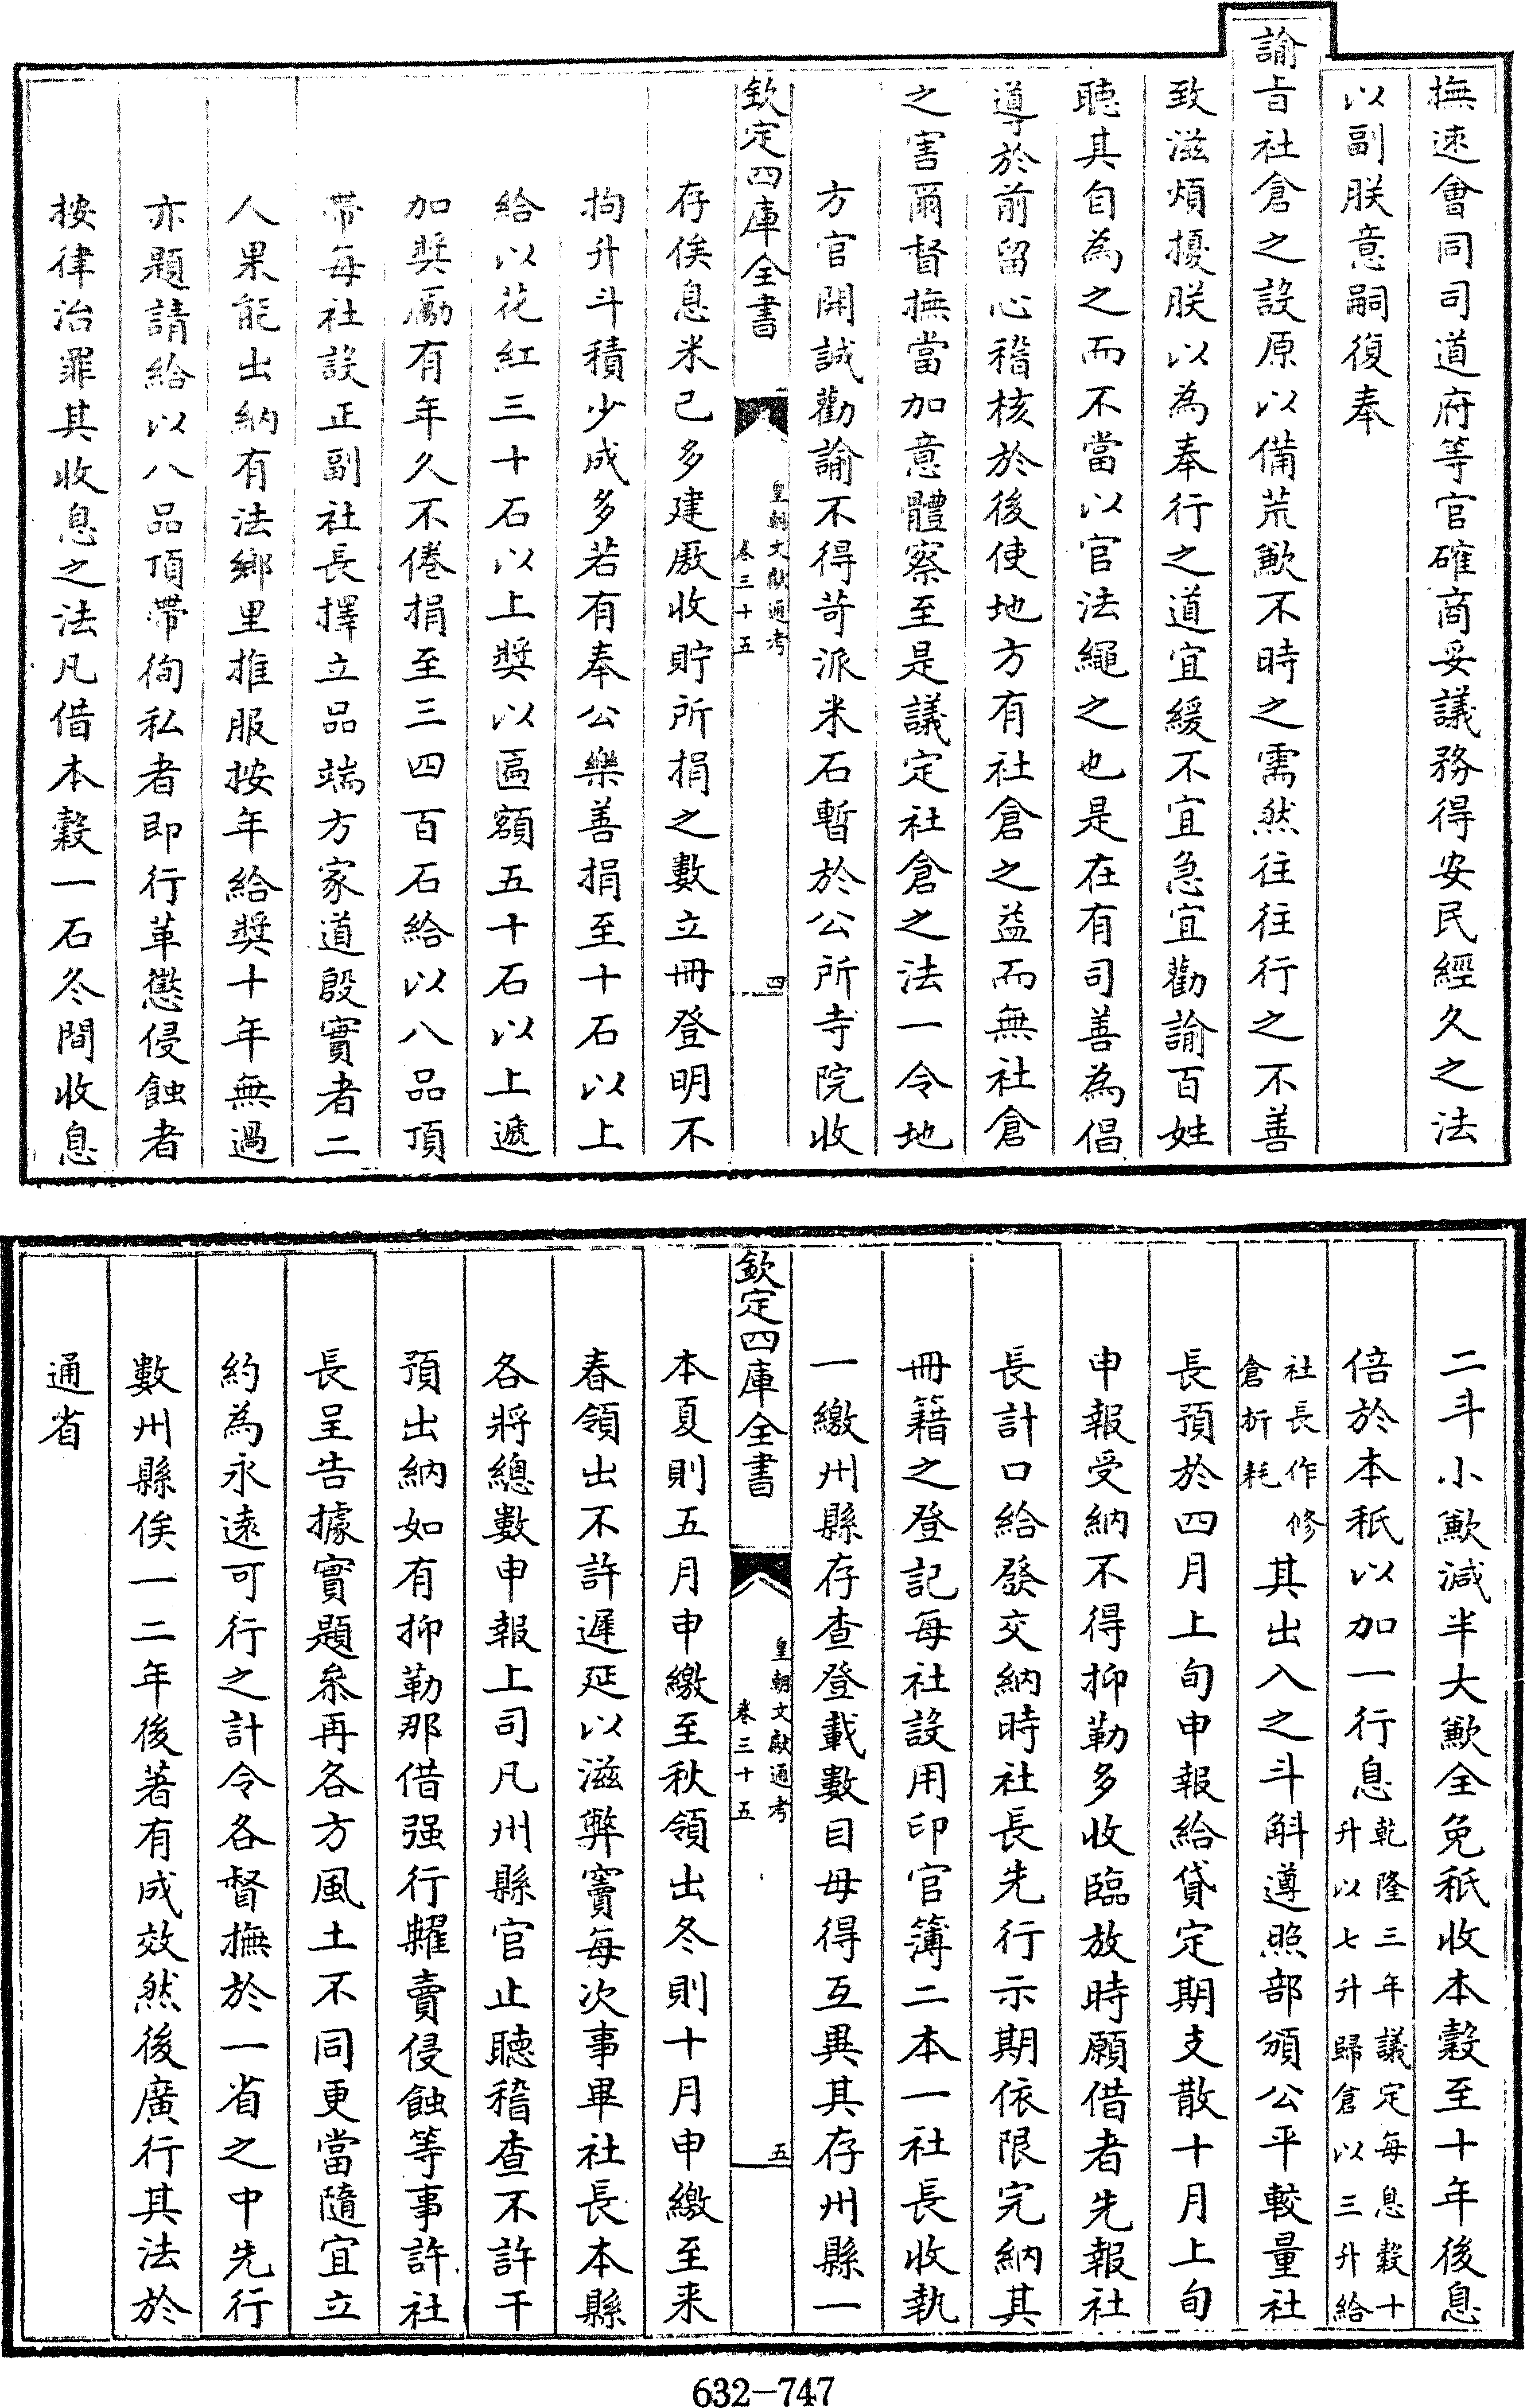 撫速會同司道府等官確商妥議務得安民經久之法
以副朕意嗣復奉
諭旨社倉之設原以備荒歉不時之需然往往行之不善
致滋煩擾朕以為奉行之道宜緩不宜急宜勸諭百姓
聽其自為之而不當以官法繩之也是在有司善為倡
導於前留心稽核於後使地方有社倉之益而無社倉
之害爾督撫當加意體察至是議定社倉之法一令地
方官開誠勸諭不得苛派米石暫於公所寺院收
欽定四庫全書
皇朝文獻通考
卷三十五
四
存俟息米已多建厫收貯所捐之數立冊登明不
拘升斗積少成多若有奉公樂善捐至十石以上
給以花紅三十石以上獎以匾額五十石以上遞
加獎勵有年久不倦捐至三四百石給以八品頂
帶每社設正副社長擇立品端方家道殷實者二
人果能出納有法鄉里推服按年給獎十年無過
亦題請給以八品頂帶徇私者即行革懲侵蝕者
按律治罪其收息之法凡借本穀一石冬間收息
二斗小歉減半大歉全免秖收本穀至十年後息
倍於本秖以加一行息乾隆三年議定每息穀十
升以七升歸倉以三升給
社長作修
倉折耗其出入之斗斛遵照部頒公平較量社
長預於四月上旬申報給貸定期支散十月上旬
申報受納不得抑勒多收臨放時願借者先報社
長計口給發交納時社長先行示期依限完納其
冊籍之登記每社設用印官簿二本一社長收執
一繳州縣存查登載數目毋得互異其存州縣一
欽定四庫全書
皇朝文獻通考
卷三十五
五
本夏則五月申繳至秋領出冬則十月申繳至来
春領出不許遲延以滋弊竇每次事畢社長本縣
各將總數申報上司凡州縣官止聽稽查不許干
預出納如有抑勒那借强行糶賣侵蝕等事許社
長呈告據實題叅再各方風土不同更當隨宜立
約為永遠可行之計令各督撫於一省之中先行
數州縣俟一二年後著有成效然後廣行其法於
通省
632-747